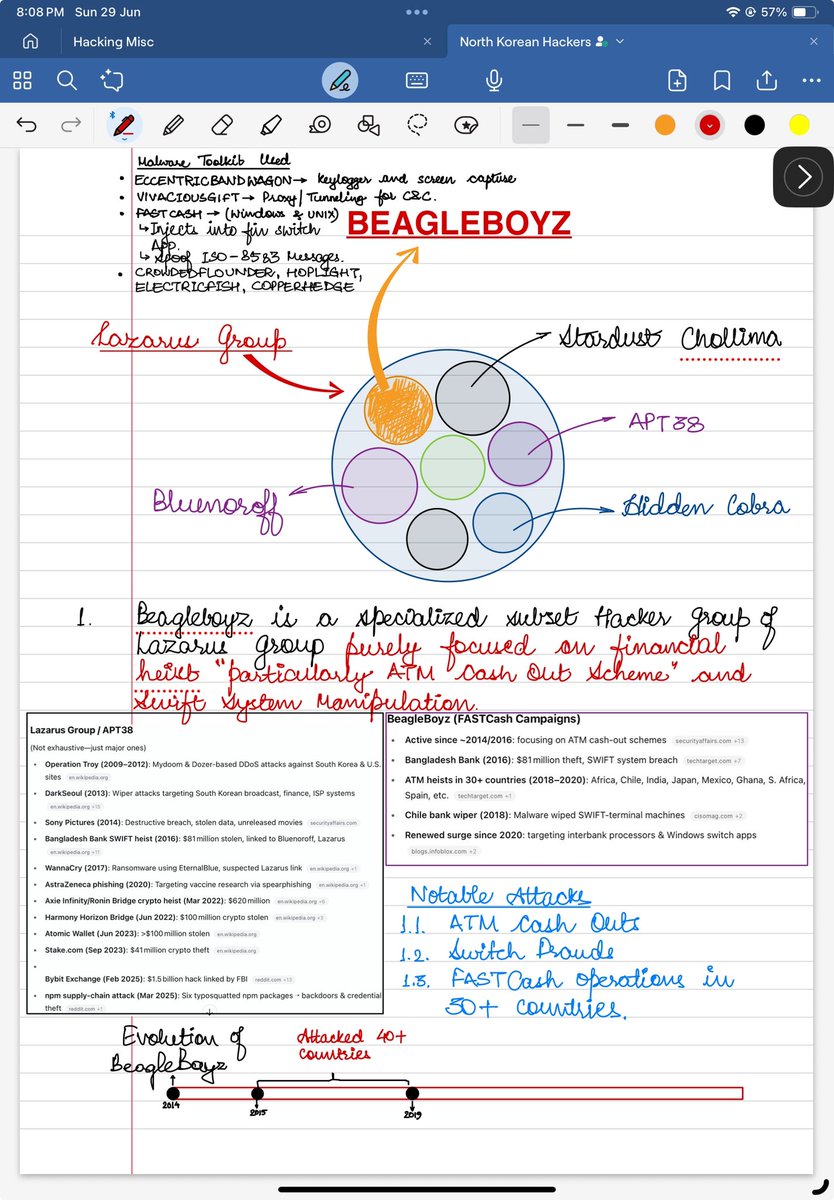 8:08 PM Sun 29 Jun
57%
Hacking Misc
North Korean Hackers
Malware Toolkit Used
• ECCENTRICBANDWAGON → Keylogger and screen capture
• VIVACIOUSGIFT → Proxy/Tunneling for C&C.
• FASTCASH → (Windows & UNIX)
↳ Injects into fin switch
App.
↳ Spoof ISO-8583 Messages.
• CROWDEDFLOUNDER, HOPLIGHT,
ELECTRICFISH, COPPERHEDGE
BEAGLEBOYZ
Lazarus Group
Stardust Chollima
APT38
Bluenoroff
Hidden Cobra
1. Beagleboyz is a specialized subset Hacker group of
Lazarus group purely focused on financial
heist "particularly ATM "Cash Out Scheme" and
Swift System Manipulation.
Lazarus Group / APT38
(Not exhaustive—just major ones)
• Operation Troy (2009–2012): Mydoom & Dozer-based DDoS attacks against South Korea & U.S.
sites en.wikipedia.org
• DarkSeoul (2013): Wiper attacks targeting South Korean broadcast, finance, ISP systems
en.wikipedia.org +15
• Sony Pictures (2014): Destructive breach, stolen data, unreleased movies securityaffairs.com
• Bangladesh Bank SWIFT heist (2016): $81 million stolen, linked to Bluenoroff, Lazarus
en.wikipedia.org +11
• WannaCry (2017): Ransomware using EternalBlue, suspected Lazarus link en.wikipedia.org +1
• AstraZeneca phishing (2020): Targeting vaccine research via spearphishing en.wikipedia.org +1
• Axie Infinity/Ronin Bridge crypto heist (Mar 2022): $620 million en.wikipedia.org +5
• Harmony Horizon Bridge (Jun 2022): $100 million crypto stolen en.wikipedia.org +3
• Atomic Wallet (Jun 2023): >$100 million stolen en.wikipedia.org
• Stake.com (Sep 2023): $41 million crypto theft en.wikipedia.org
•
Bybit Exchange (Feb 2025): $1.5 billion hack linked by FBI reddit.com +13
• npm supply-chain attack (Mar 2025): Six typosquatted npm packages → backdoors & credential
theft reddit.com +1
BeagleBoyz (FASTCash Campaigns)
• Active since ~2014/2016: focusing on ATM cash-out schemes securityaffairs.com +13
• Bangladesh Bank (2016): $81 million theft, SWIFT system breach techtarget.com +7
• ATM heists in 30+ countries (2018–2020): Africa, Chile, India, Japan, Mexico, Ghana, S. Africa,
Spain, etc. techtarget.com +1
• Chile bank wiper (2018): Malware wiped SWIFT-terminal machines cisomag.com +2
• Renewed surge since 2020: targeting interbank processors & Windows switch apps
blogs.infoblox.com +2
Notable Attacks
1.1. ATM Cash Outs
1.2. Switch Frauds
1.3. FASTCash operations in
30+ countries.
Evolution of
BeagleBoyz
Attacked 40+
countries
2014
2015
2019